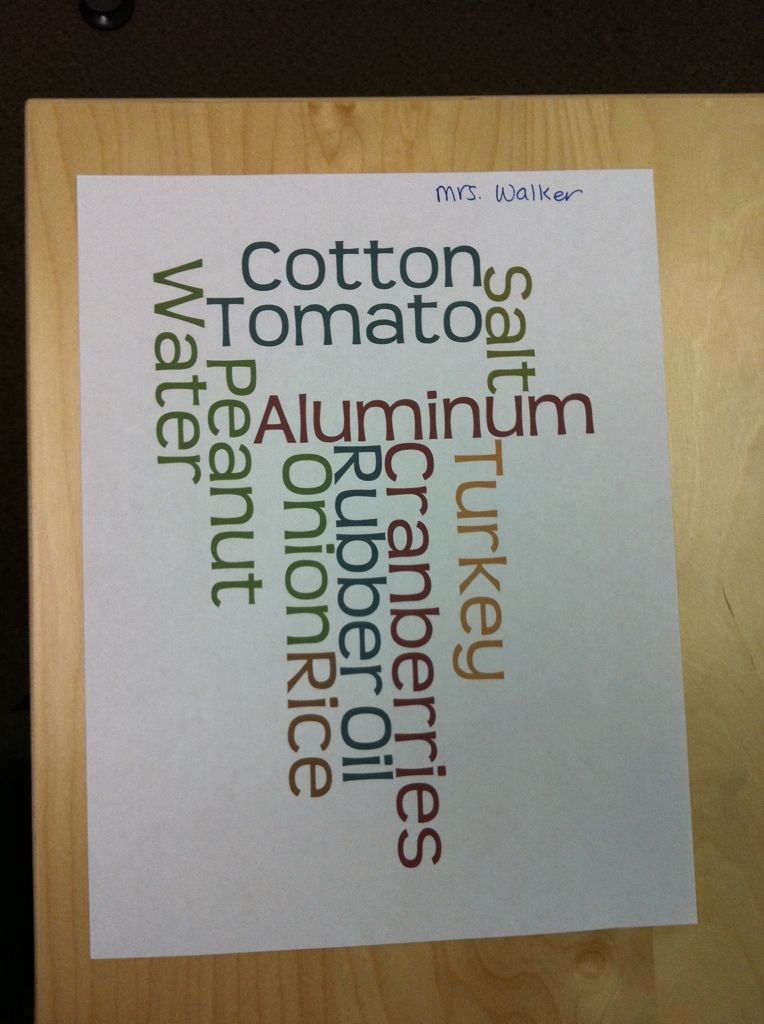 Mrs. Walker
Cotton
Tomato
Salt
Water
Peanut
Aluminum
Onion
Rice
Rubber
Oil
Cranberries
Turkey